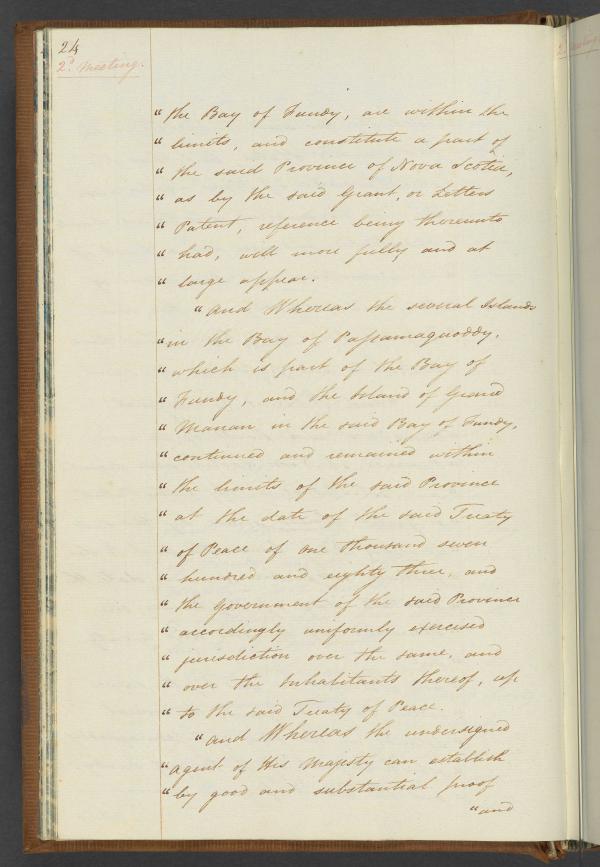 24
2d. Meeting.
“ the Bay of Fundy, are within the
“ limits, and constitute a part of
“ the said Province of Nova Scotia,
“ as by the said Grant, or Letters
“ Patent, reference being thereunto
“ had, will more fully and at
“ large appear.
“ And Whereas the several Islands
“ in the Bay of Passamaquoddy,
“ which is part of the Bay of
“ Fundy, and the Island of Grand
“ Manan in the said Bay of Fundy,
“ continued and remained within
“ the limits of the said Province
“ at the date of the said Treaty
“ of Peace of one thousand seven
“ hundred and eighty three, and
“ the Government of the said Province
“ accordingly uniformly exercised
“ jurisdiction over the same, and
“ over the Inhabitants thereof, up
“ to the said Treaty of Peace.
“ And Whereas the undersigned
“ agent of His Majesty can establish
“ by good and substantial proof
“ and